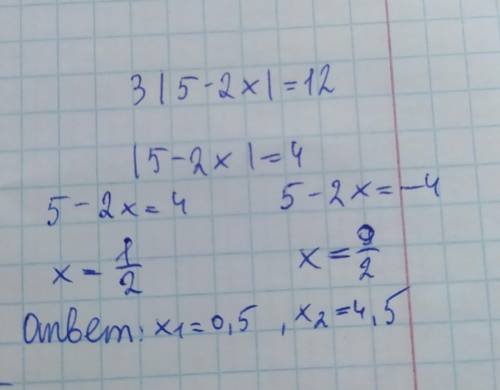 3|5-2x|=12
|5-2x|=4
5-2x=4    5-2x=-4
x=1/2    x=9/2
Ответ: x₁=0,5, x₂=4,5